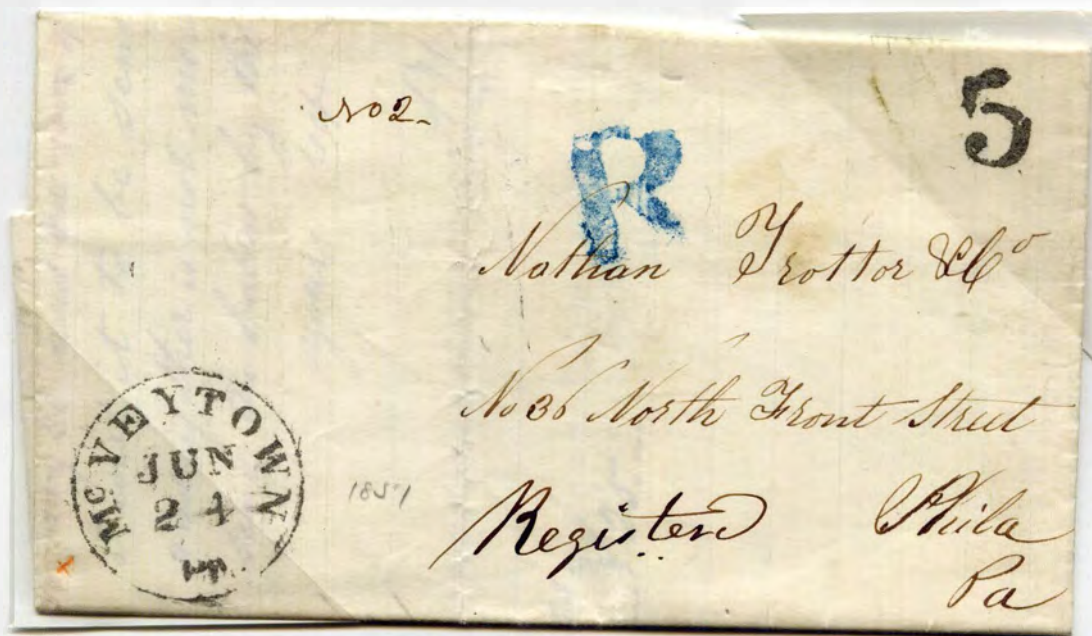 5
No 2-
R
Nathan Trotter & Co
No 36 North Front Street
Registerd Phila
Pa
McVEYTOWN
JUN
24
1851